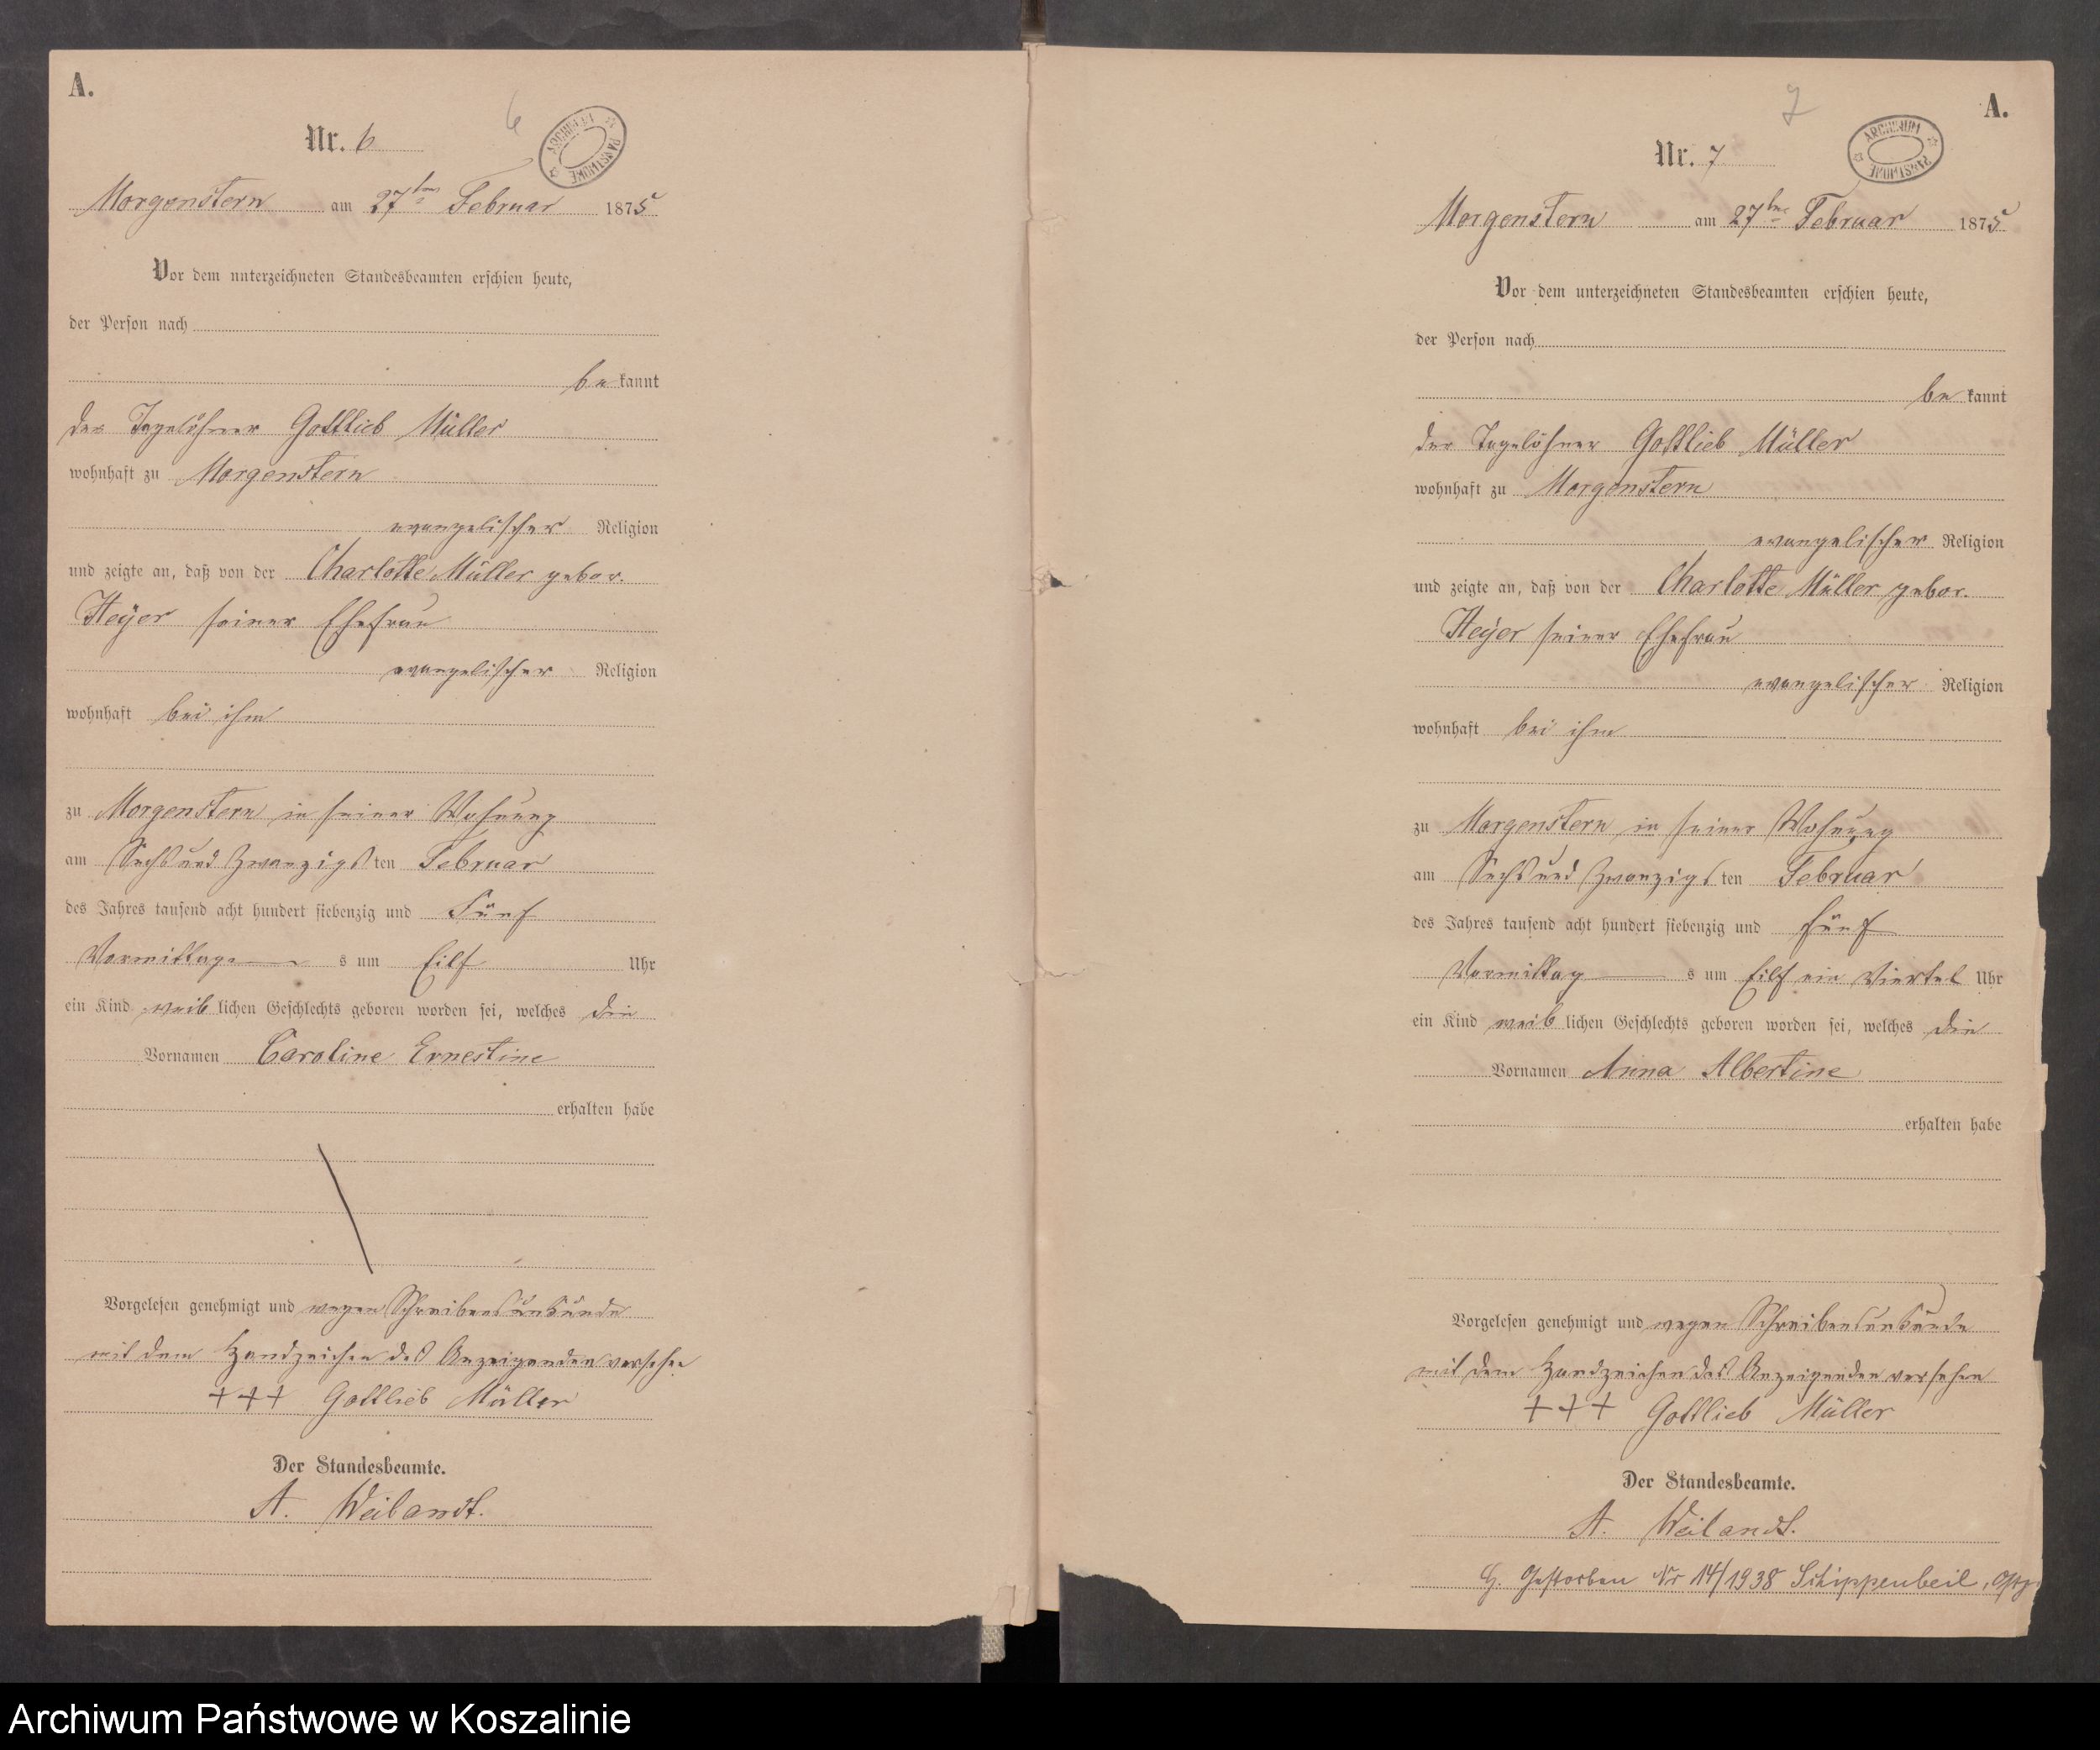 A.
6
Nr. 6
ARCHIWUM PAŃSTWOWE
Morgenstern am 27ten Februar 1875
Vor dem unterzeichneten Standesbeamten erschien heute,
der Person nach
be kannt
der Tagelöhner Gottlieb Müller
wohnhaft zu Morgenstern
evangelischer Religion
und zeigte an, daß von der Charlotte Müller gebor.
Heÿer seiner Ehefrau
evangelischer Religion
wohnhaft bei ihm
zu Morgenstern in seiner Wohnung
am Sechs und Zwanzigs ten Februar
des Jahres tausend acht hundert siebenzig und Fünf
Vormittag s um Eilf Uhr
ein Kind weib lichen Geschlechts geboren worden sei, welches die
Vornamen Caroline Ernestine
erhalten habe
Vorgelesen genehmigt und wegen Schreibensunkunde
mit dem Handzeichen des Anzeigenden versehen
+++ Gottlieb Müller
Der Standesbeamte.
A. Weilandt.
A.
7
Nr. 7
ARCHIWUM PAŃSTWOWE
Morgenstern am 27ten Februar 1875
Vor dem unterzeichneten Standesbeamten erschien heute,
der Person nach
be kannt
der Tagelöhner Gottlieb Müller
wohnhaft zu Morgenstern
evangelischer Religion
und zeigte an, daß von der Charlotte Müller gebor.
Heÿer seiner Ehefrau
evangelischer Religion
wohnhaft bei ihm
zu Morgenstern in seiner Wohnung
am Sechs und Zwanzigs ten Februar
des Jahres tausend acht hundert siebenzig und fünf
Vormittag s um Eilf ein Viertel Uhr
ein Kind weib lichen Geschlechts geboren worden sei, welches die
Vornamen Anna Albertine
erhalten habe
Vorgelesen genehmigt und wegen Schreibensunkunde
mit dem Handzeichen des Anzeigenden versehen
+++ Gottlieb Müller
Der Standesbeamte.
A. Weilandt.
G. Gestorben Nr 14/1938 Schippenbeil, Ostp
Archiwum Państwowe w Koszalinie